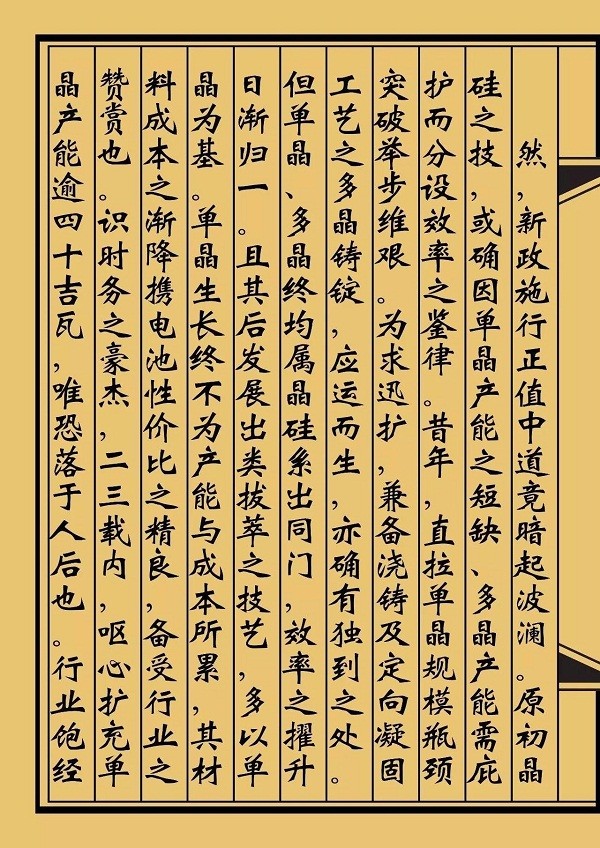 然，新政施行正值中道竟暗起波澜。原初晶
硅之技，或确因单晶产能之短缺、多晶产能需庇
护而分设效率之鉴律。昔年，直拉单晶规模瓶颈
突破举步维艰。为求迅扩，兼备浇铸及定向凝固
工艺之多晶铸锭，应运而生，亦确有独到之处。
但单晶、多晶终均属晶硅系出同门，效率之擢升
日渐归一。且其后发展出类拔萃之技艺，多以单
晶为基。单晶生长终不为产能与成本所累，其材
料成本之渐降携电池性价比之精良，备受行业之
赞赏也。识时务之豪杰，二三载内，呕心扩充单
晶产能逾四十吉瓦，唯恐落于人后也。行业饱经